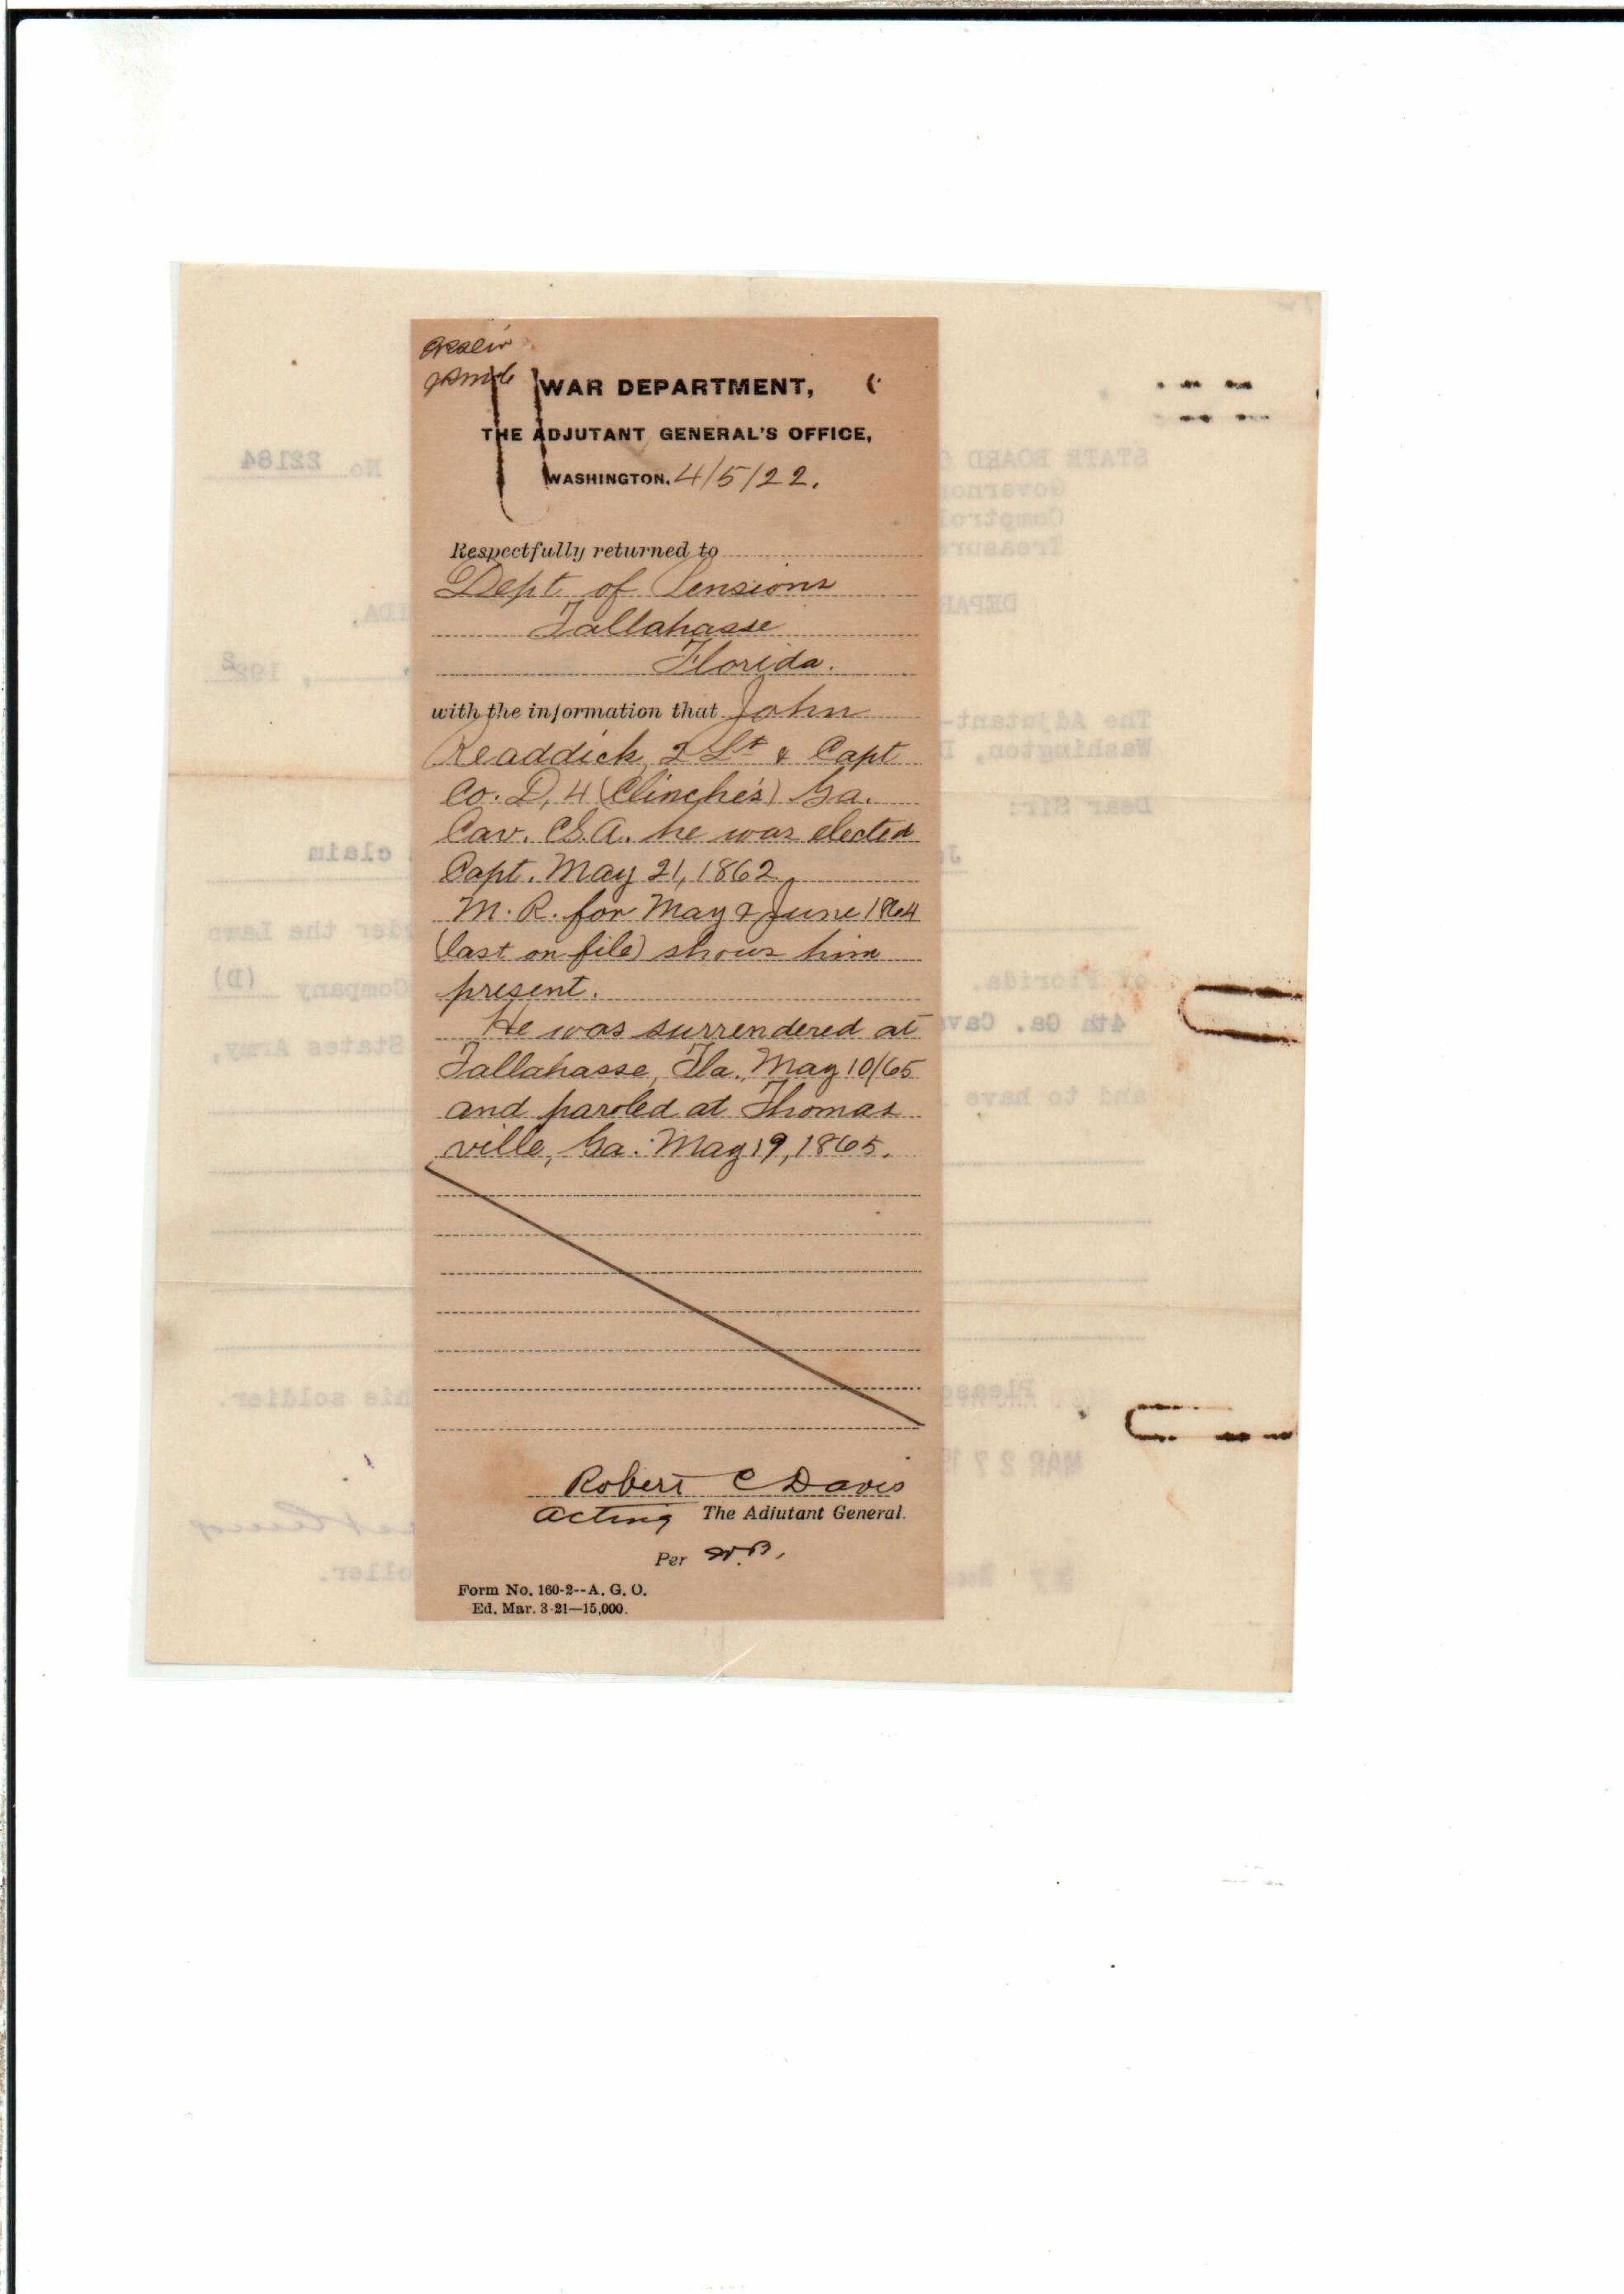 WAR DEPARTMENT,
THE ADJUTANT GENERAL'S OFFICE,
WASHINGTON, 4/5/22.
Respectfully returned to
Dept. of Pensions
Tallahasse
Florida.
with the information that John
Readdick, 2 Lt & Capt
Co. D, 4 (Clinche's) Ga.
Cav. C.S.A. he was elected
Capt. May 21, 1862.
M. R. for May & June 1864
(last on file) shows him
present.
He was surrendered at
Tallahasse, Fla., May 10/65
and paroled at Thomas
ville, Ga. May 19, 1865.
Robert C Davis
Acting The Adjutant General.
Per W.B.
Form No. 160-2--A. G. O.
Ed. Mar. 3-21—15,000.
STATE BOARD
No 22184
Governor
Comptrol
Treasure
DEPAR
IDA,
, 1922
The Adjutant-
Washington, D
Dear Sir:
claim
der the Laws
of Florida.
Company (D)
4th Ga. Cav
States Army,
and to have
Please
his soldier.
MAR 27
oller.